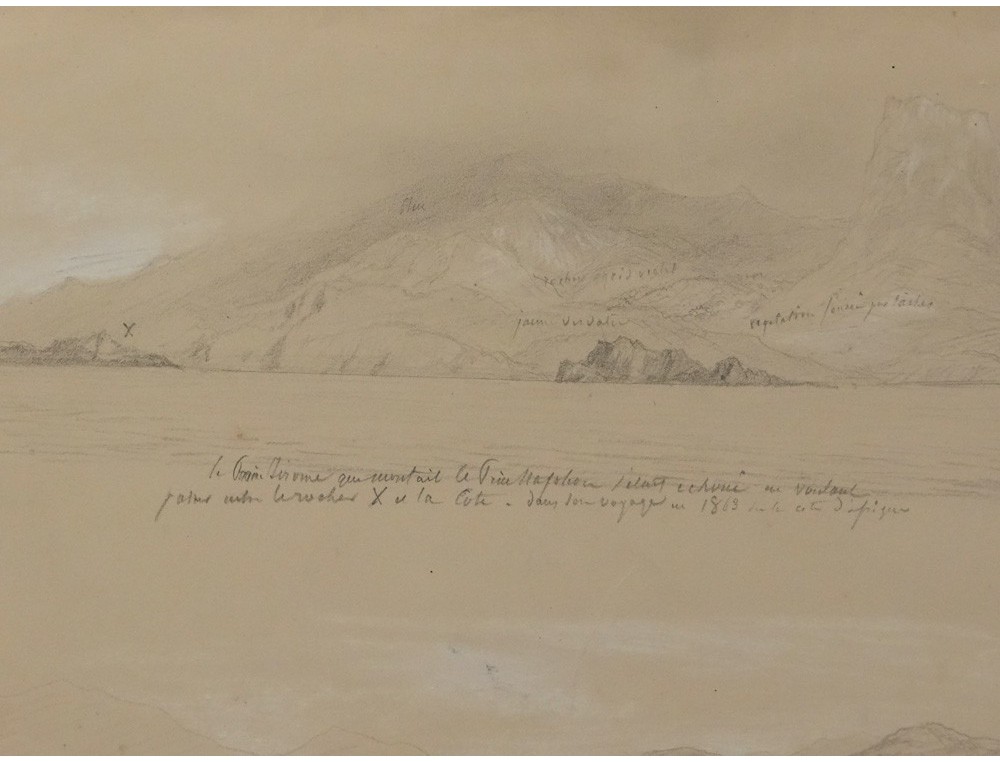 bleu
rocher gris violet
jaune verdatre
vegetation foncée par taches
X
le Prin Jérome que montait le Prin Napoléon s'était echoué en voulant
passer entre le rocher X et la Cote - dans son voyage en 1863 sur la cote d'afrique